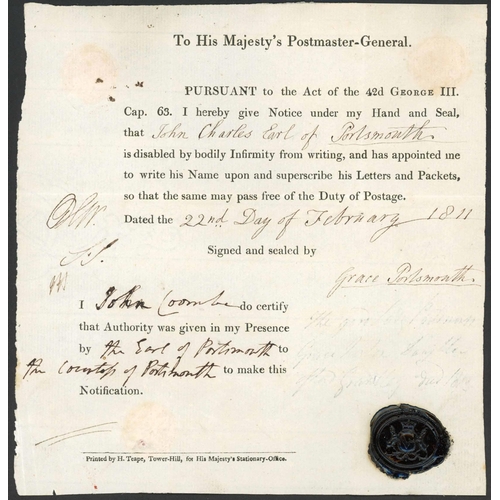 To His Majesty's Postmaster-General.
PURSUANT to the Act of the 42d GEORGE III.
Cap. 63. I hereby give Notice under my Hand and Seal,
that John Charles Earl of Portsmouth
is disabled by bodily Infirmity from writing, and has appointed me
to write his Name upon and superscribe his Letters and Packets,
so that the same may pass free of the Duty of Postage.
Dated the 22nd. Day of February 1811
Signed and sealed by
Grace Portsmouth
I John Coombe do certify
that Authority was given in my Presence
by the Earl of Portsmouth to
the Countess of Portsmouth to make this
Notification.
Printed by H. Teape, Tower-Hill, for His Majesty's Stationery-Office.